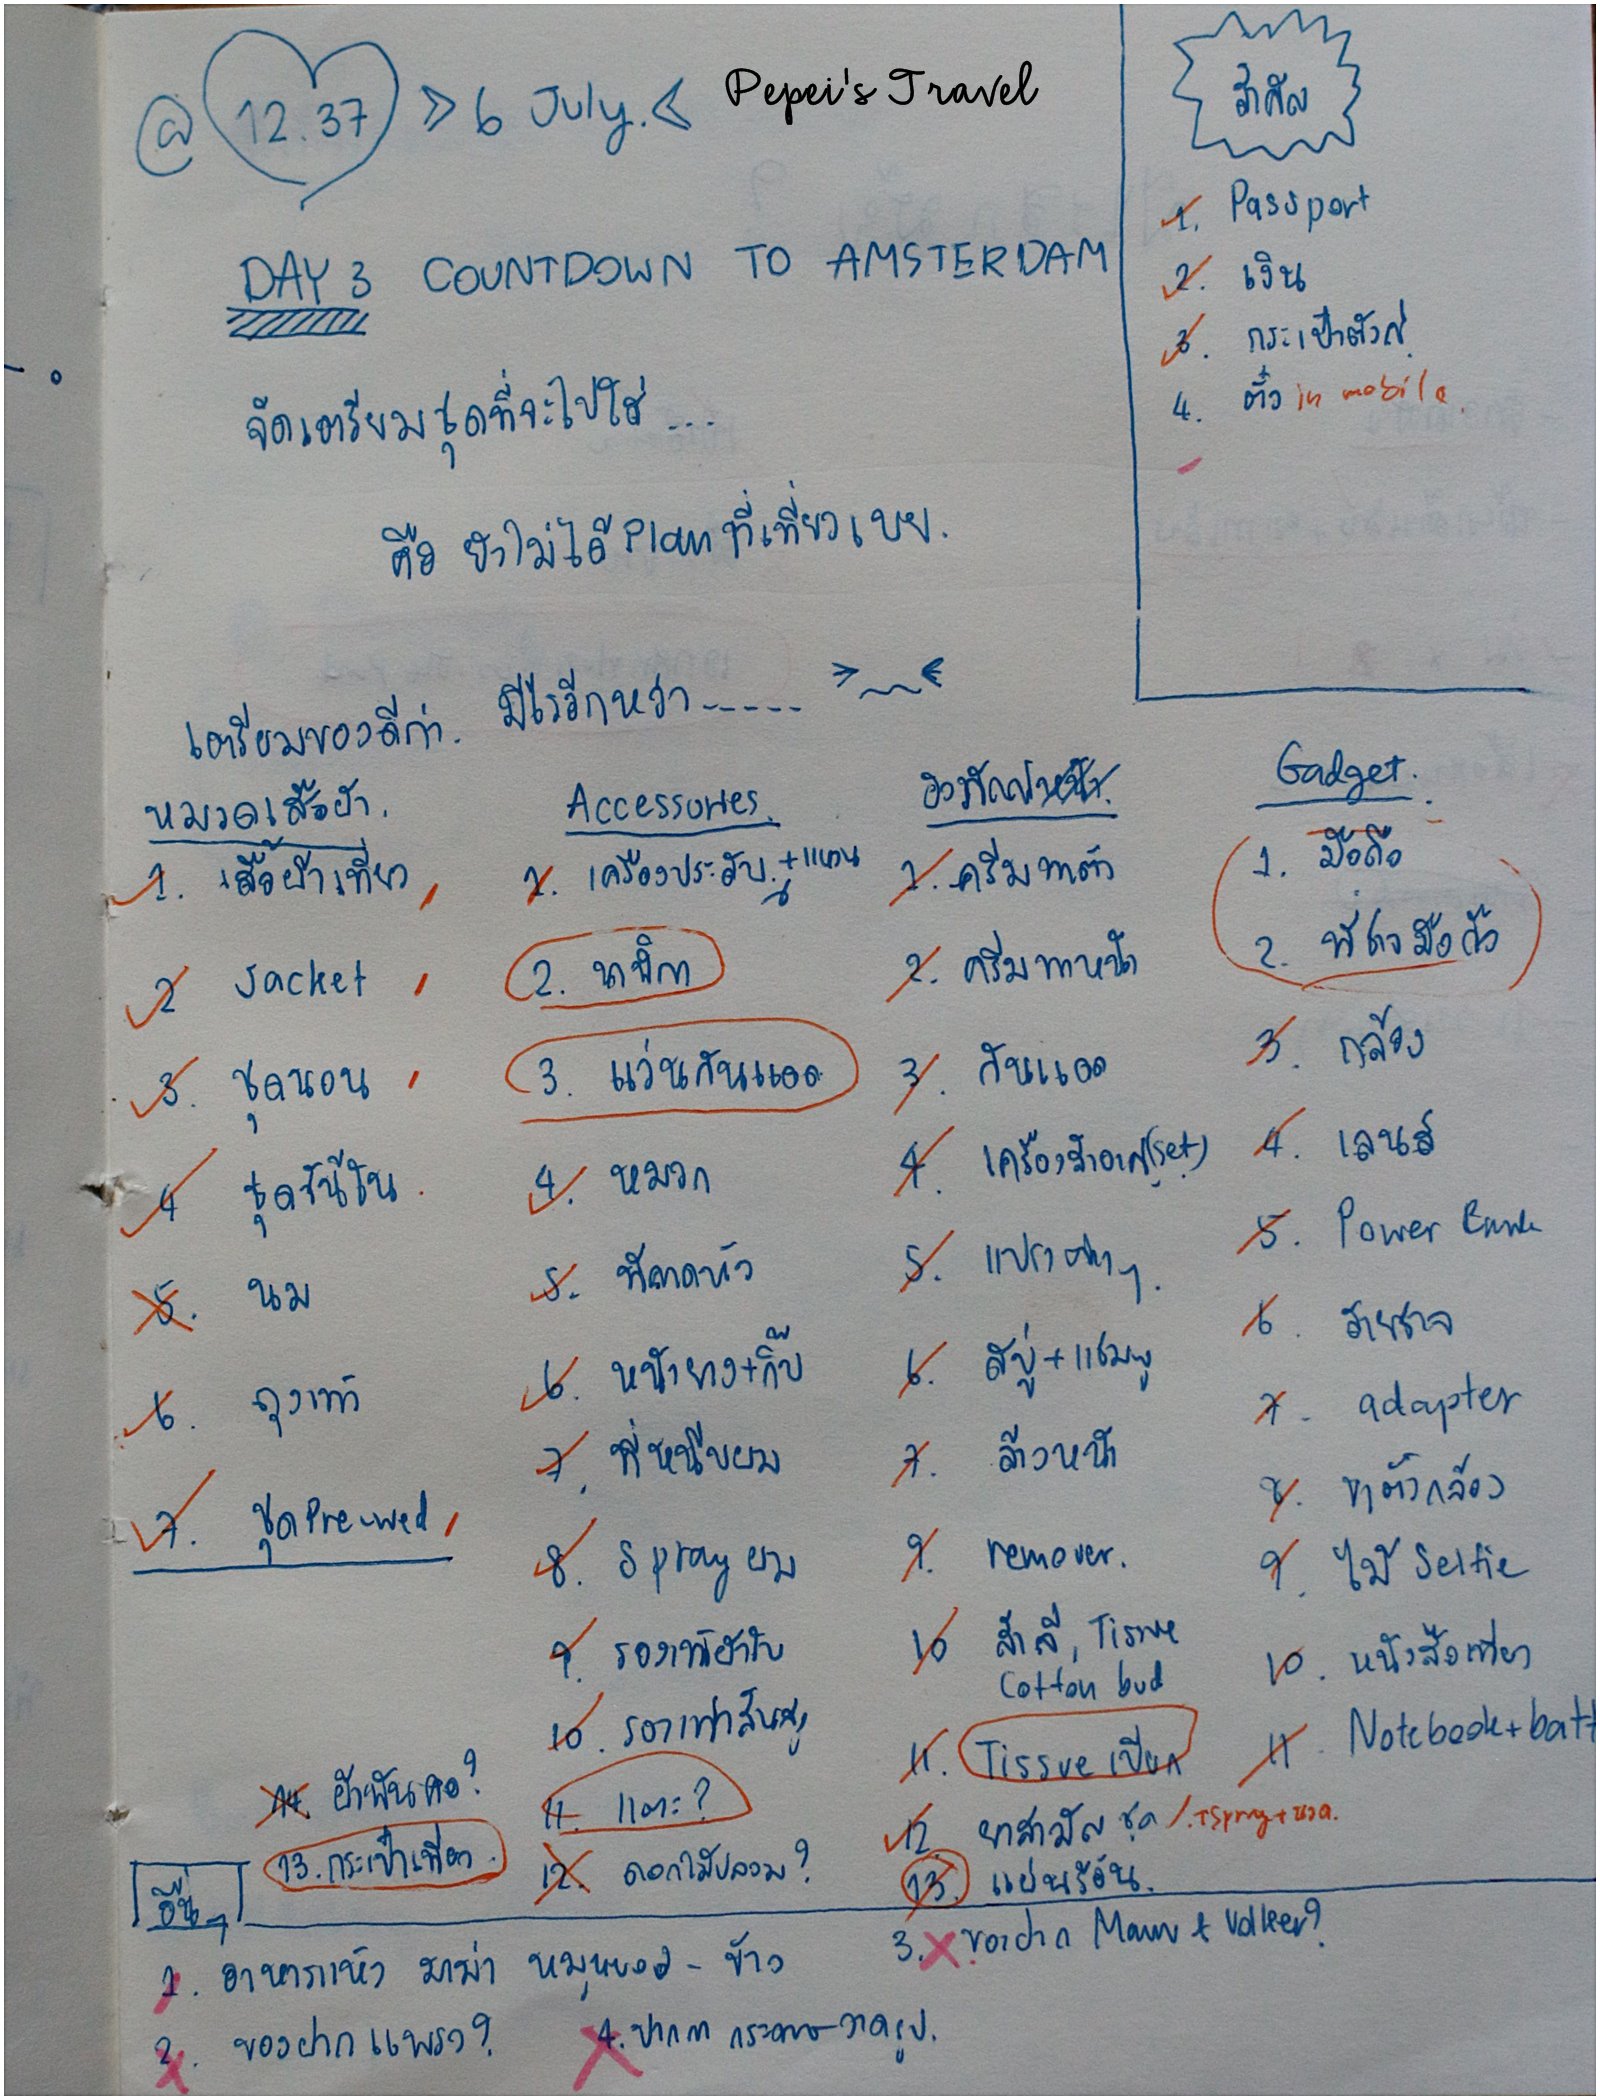 @ 12.37 » 6 July. < Pepei's Travel
DAY 3 COUNTDOWN TO AMSTERDAM
จัดเตรียมชุดที่จะไปใส่ ...
คือ ยังไม่ได้ Plan ที่เที่ยวเลย.
สำคัญ
1. Passport
2. เงิน
3. กระเป๋าตังค์
4. ตั๋ว in mobile.
เตรียมของดีกว่า. มีไรอีกหว่า......
หมวดเสื้อผ้า.
1. เสื้อผ้าเที่ยว
2 Jacket
3. ชุดนอน
4 ชุดชั้นใน
5. นม
6. ถุงเท้า
7. ชุด Pre-wed
Accessories.
1. เครื่องประดับ. +แหวน
2. นาฬิกา
3. แว่นกันแดด
4. หมวก
5. ที่คาดหัว
6. หนังยาง+กิ๊บ
7. ที่หนีบผม
8. Spray ผม
9. รองเท้าผ้าใบ
10. รองเท้าส้นสูง
11. แตะ?
12. ดอกไม้ปลอม?
13. กระเป๋าเที่ยว.
14. ผ้าพันคอ?
1. ครีมทาตัว
2. ครีมทาหน้า
3. กันแดด
4. เครื่องสำอาง(set)
5. แปรงต่างๆ.
6. สบู่+แชมพู
7. ล้างหน้า
9. remover.
10 สำลี, Tissue
Cotton bud
11. Tissue เปียก
12. ยาสามัญ ชุด /.+Spray+นวด.
13. แผ่นร้อน.
Gadget.
1. มือถือ
2. ที่ชาจมือถือ
3. กล้อง
4. เลนส์
5. Power Bank
6. สายชาจ
7. adapter
8. ขาตั้งกล้อง
9. ไม้ Selfie
10. หนังสือเที่ยว
11. Notebook+batt
อื่นๆ
1. อาหารแห้ง มาม่า หมูหยอง - ข้าว
2. ของฝากแพรว?
3. ของฝาก
4. ปากกา กระดาษวาดรูป.